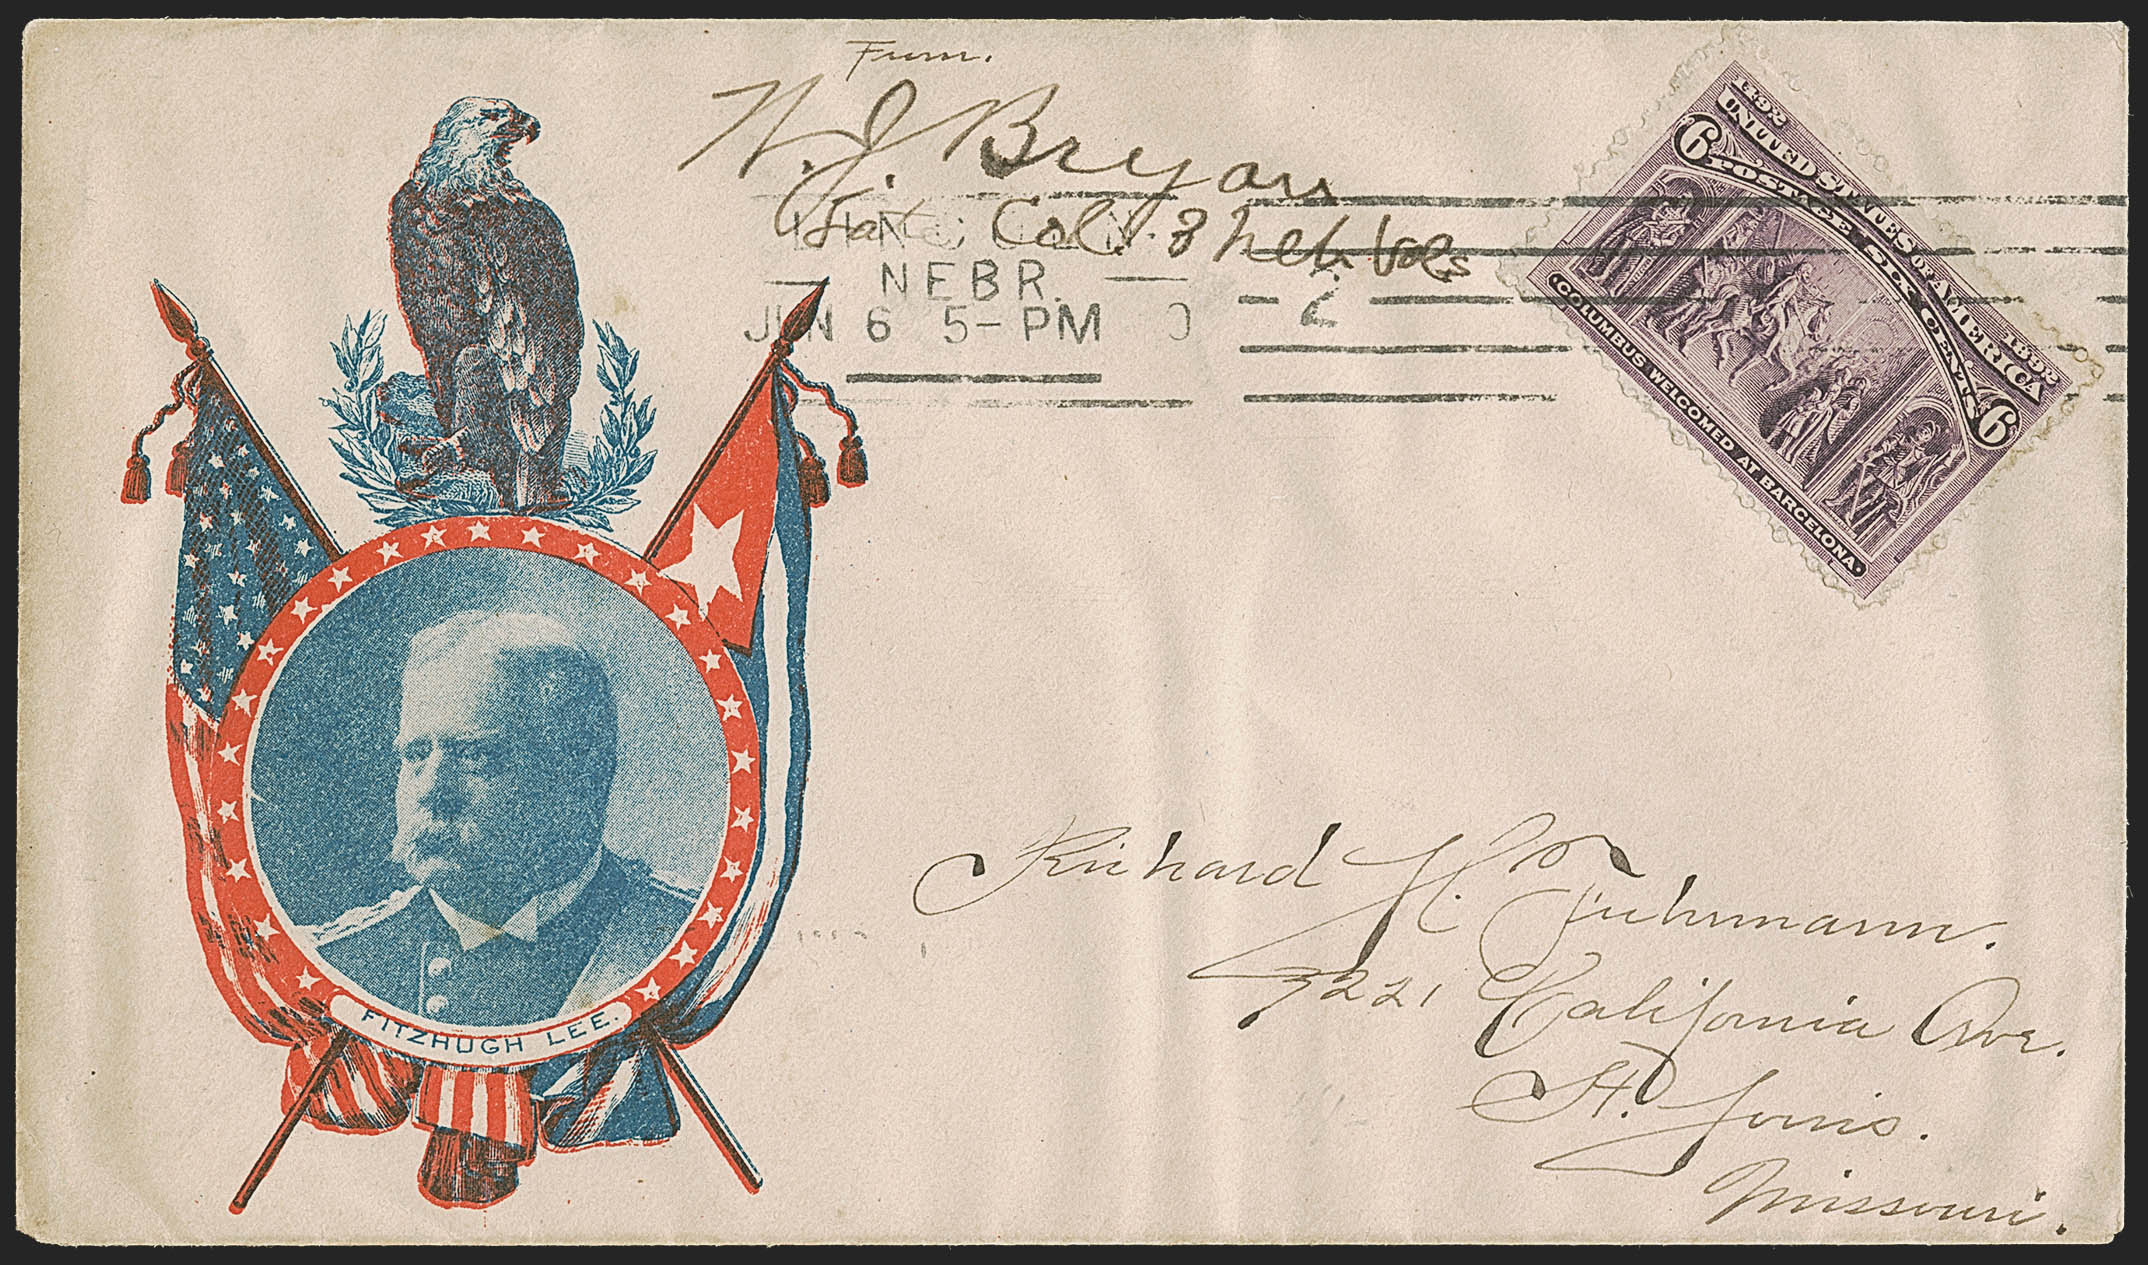 From.
W. J. Bryan
Col. 3 Neb Vols
NEBR.
JUN 6 5-PM
1492 1892
UNITED STATES OF AMERICA
6 POSTAGE SIX CENTS 6
COLUMBUS WELCOMED AT BARCELONA.
FITZHUGH LEE.
Richard H. Fuhrmann.
3221 California Ave.
St. Louis.
Missouri.